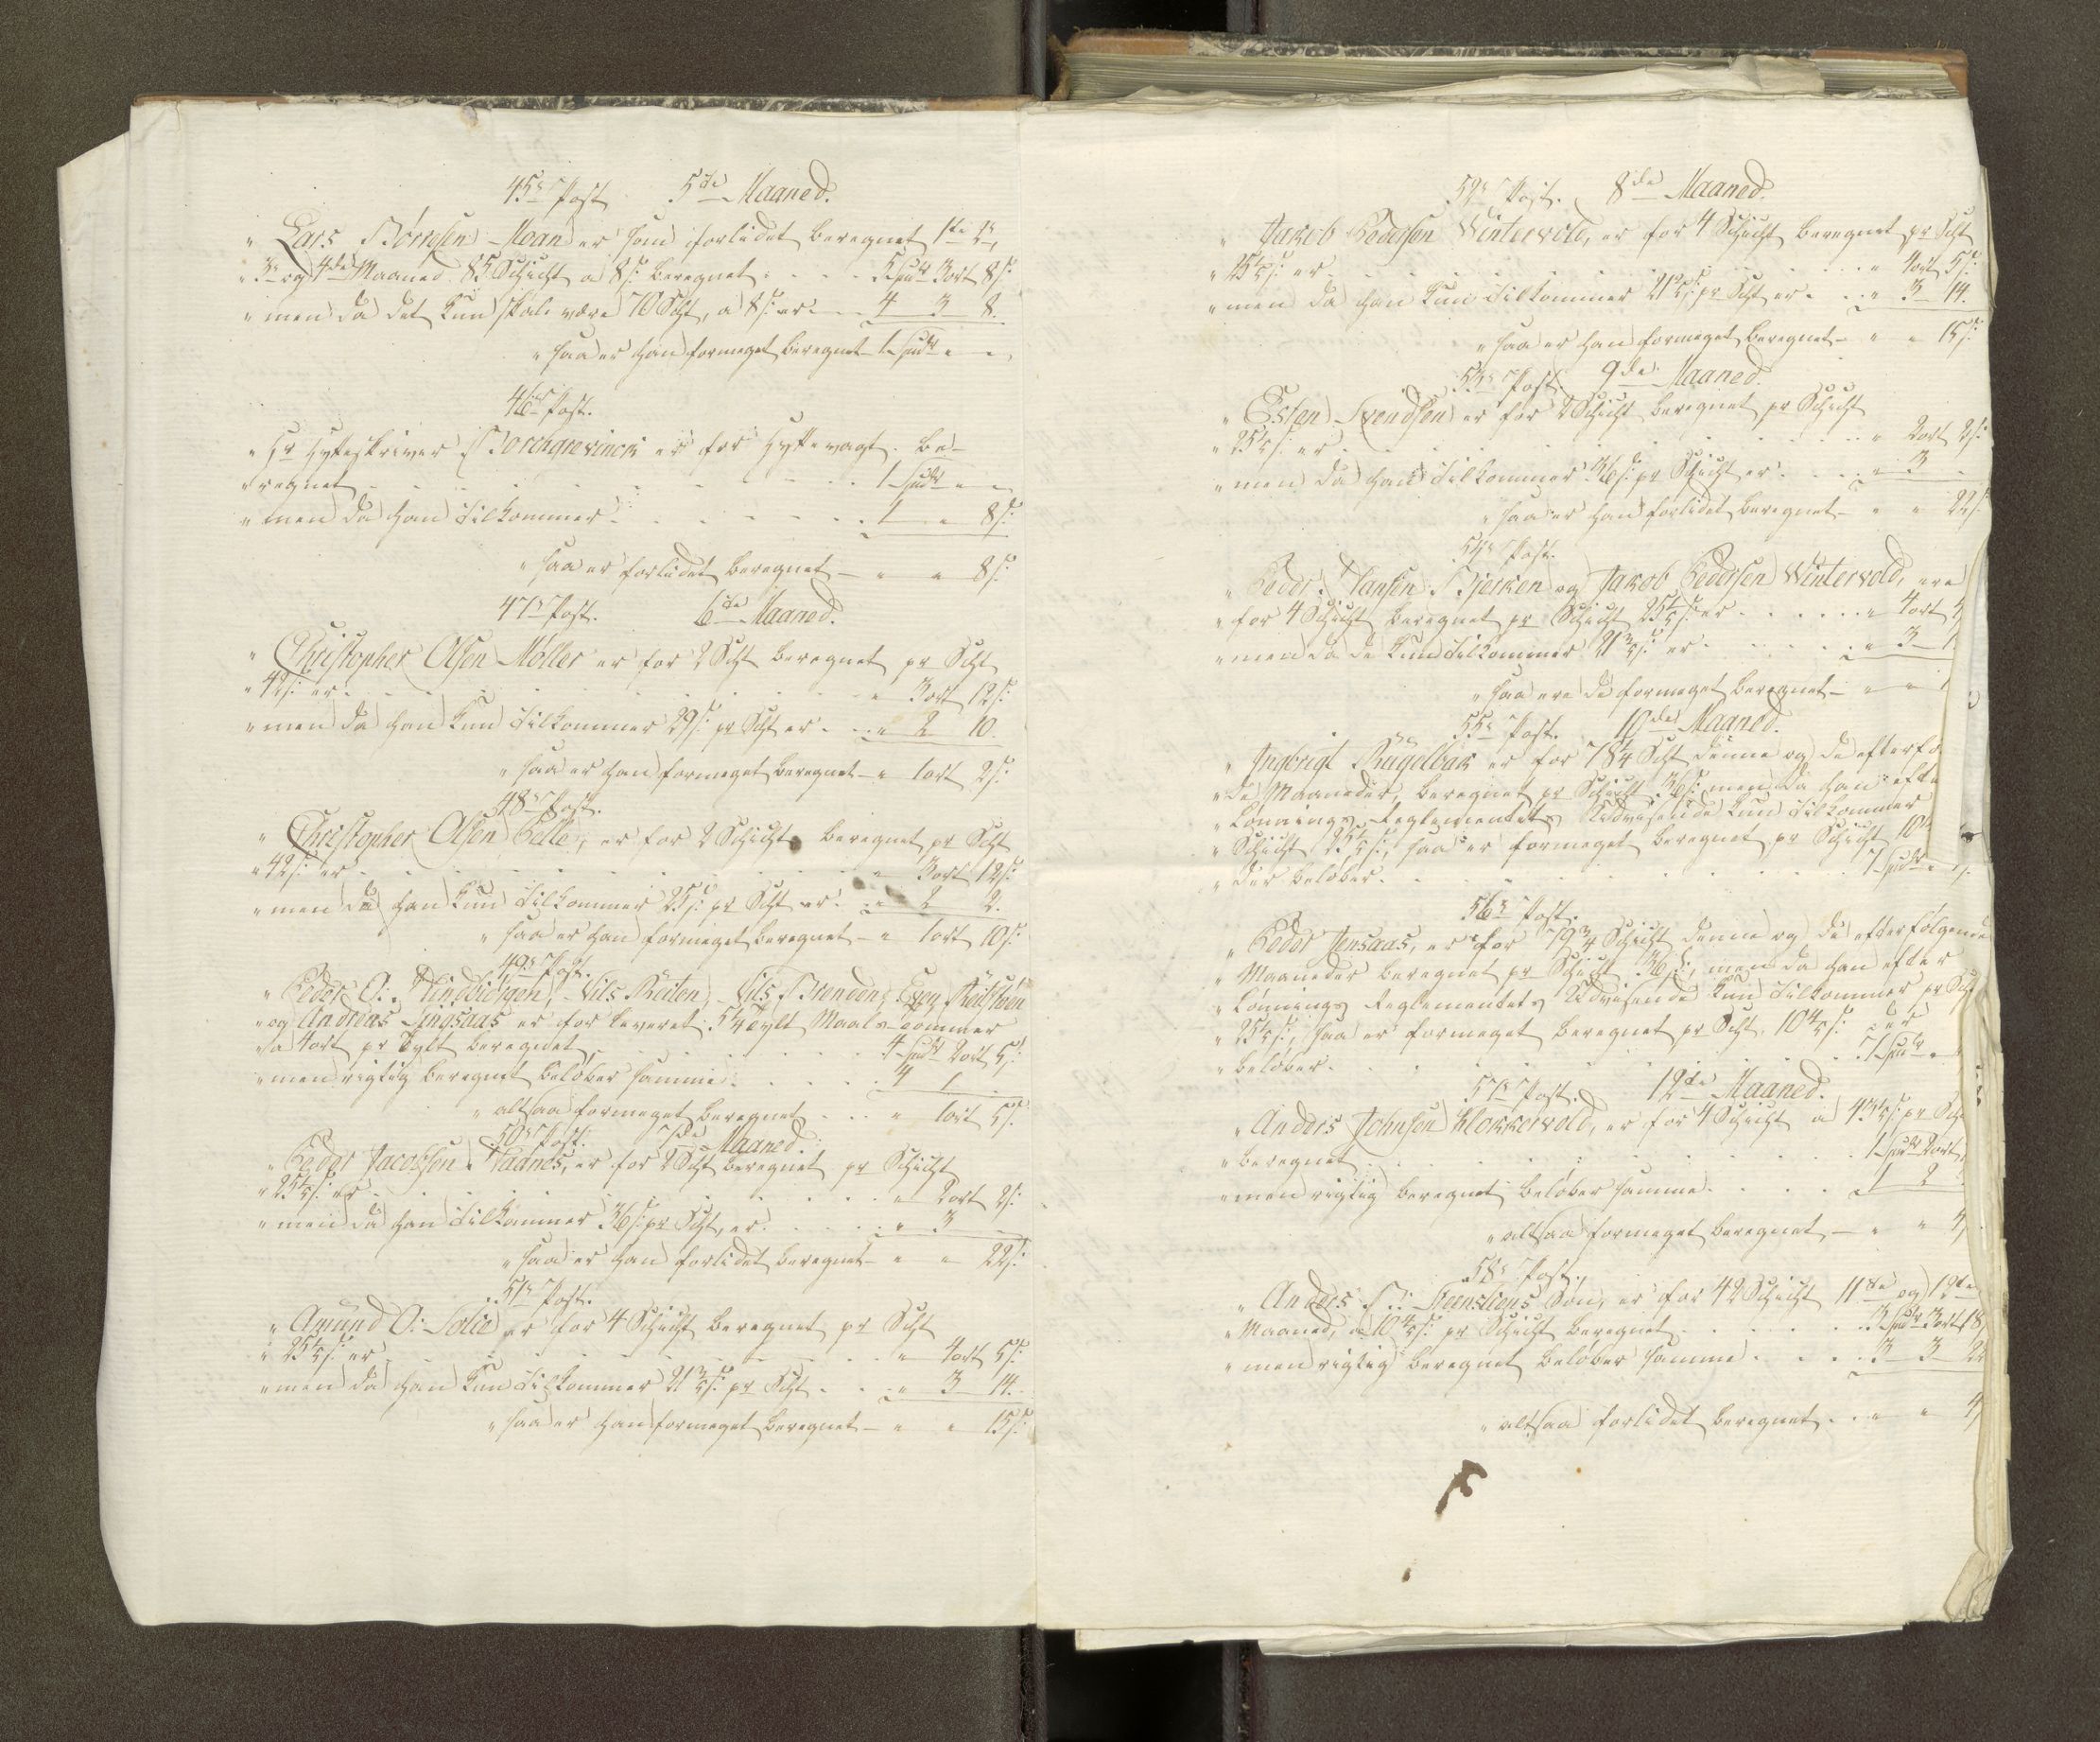 45r Post 5te Maaned.
" Lars Børresen Moan er som forlidet beregnet 1te 2r
" 3r og 4de Maaned 85 Schicht a 8 s: beregnet . . . . 5 Spdr 3 ort 8 s:
" men da det kun skal være 70 Scht, a 8 s: er . . 4 3 8.
" saa er han formeget beregnet – 1 Spdr " "
46r Post.
" Hr Hytteskriver Borchgrevinck er for Hyttevagt be-
" regnet . . . . . . . . . 1 Spdr " "
" men da han tilkommer . . . . . . 1 " 8 s:
" saa er forlidet beregnet – " " 8 s:
47r Post. 6te Maaned.
" Christopher Olsen Møller er for 2 Scht beregnet pr Scht
" 42 s: er . . . . . . . . . " 3 ort 12 s:
" men da han kun tilkommer 29 s: pr Scht er . . . " 2 10.
" saa er han formeget beregnet – " 1 ort 2 s:
48r Post.
" Christopher Olsen Pelle, er for 2 Schicht beregnet pr Scht
" 42 s: er . . . . . . . . . " 3 ort 12 s:
" men da han kun tilkommer 25 s: pr Scht er . . " 2 2.
" saa er han formeget beregnet – " 1 ort 10 s:
49r Post.
" Peder O: Nils Reiten, Nils Brenden, Even
" og Andreas Singsaas er for leveret 5 1/4 Tylt Maals-Tømmer
" a 4 ort pr Tylt beregnet . . . . . . 4 Spdr 2 ort 5 s:
" men rigtig beregnet beløber samme . . . . . 4 1
" altsaa formeget beregnet . . . " 1 ort 5 s:
50r Post. 7de Maaned.
" Peder Jacobsen Aadnes, er for 2 Scht beregnet pr Schicht
" 25 1/5 s: er . . . . . . . . . " 2 ort 2 s:
" men da han tilkommer 36 s: pr Scht, er . . . . " 3
" saa er han forlidet beregnet – " " 22 s:
51r Post.
" Amund O: Solie er for 4 Schicht beregnet pr Scht
" 25 1/5 s: er . . . . . . . . . " 4 ort 5 s:
" men da han kun tilkommer 21 3/5 s: pr Scht . . . " 3 14.
" saa er han formeget beregnet – " " 15 s:
52r Post. 8de Maaned.
" Jakob Pedersen Wintervold, er for 4 Schicht beregnet pr Scht
" 25 1/5 s: er . . . . . . . . . " 4 ort 5 s:
" men da han kun tilkommer 21 3/5 s: pr Scht er . . . " 3 14.
" saa er han formeget beregnet – " " 15 s:
53r Post. 9de Maaned.
" Esten Svendsen er for 2 Schicht beregnet pr Schicht
" 25 1/5 s: er . . . . . . . . . " 2 ort 2 s:
" men da han tilkommer 36 s: pr Schicht er . . . . " 3
" saa er han forlidet beregnet – " " 22 s:
54r Post.
" Peder Hansen Bjerken og Jakob Pedersen Wintervold, ere
" for 4 Schicht beregnet pr Schicht 25 1/5 s: er . . . . . . " 4 ort
" men da de kun tilkommer 21 3/5 s: er . . . . . . " 3 1
" saa ere de formeget beregnet – " "
55r Post. 10de Maaned.
" Ingbrigt Kugelbak er for 78 1/4 Scht denne og de efterfø
" de Maaneder, beregnet pr Schicht 36 s: men da han efte
" Lønnings Reglementets Udvisende kun tilkommer
" Schicht 25 1/5 s:, saa er formeget beregnet pr Schicht 10
" der beløber . . . . . . . . . 7 Spdr "
56r Post.
" Peder Jensaas, er for 79 3/4 Schicht denne og de efterfølgende
" Maaneder beregnet pr Schicht 36 s:, men da han efter
" Lønnings Reglementets Udvisende kun tilkommer pr Scht
" 25 1/5 s:, saa er formeget beregnet pr Scht. 10 4/5 s: der
" beløber . . . . . . . . . 7 Spdr "
57r Post. 12te Maaned.
" Anders Johnsen Klokkervold, er for 4 Schicht a 43 1/5 s: pr Scht
" beregnet . . . . . . . . . 1 Spdr 2 ort
" men rigtig beregnet beløber samme . . . . 1 2
" altsaa formeget beregnet – " " 4
58r Post.
" Anders Steensliens Søn, er for 42 Schicht 11te og 12te
" Maaned, a 10 4/5 s: pr Schicht beregnet . . . . . . 3 Spdr 3 ort 18
" men rigtig beregnet beløber samme . . . . 3 3 22
" altsaa forlidet beregnet . . " " 4